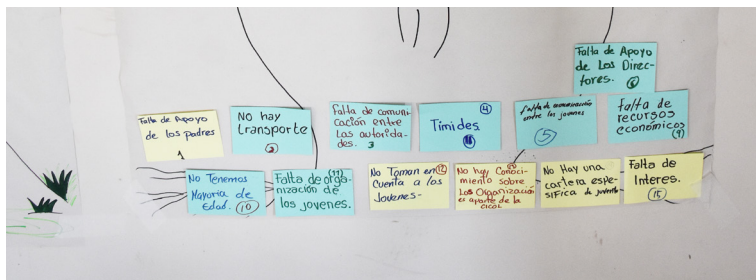 Falta de Apoyo
de Los Direc-
tores. 6
Falta de Apoyo
de los padres
1
No hay
transporte
2
falta de comuni-
cación entre
las autorida-
des. 3
4
Timides.
falta de comunicación
entre los jovenes
5
falta de
recursos
económicos
(9)
No Tenemos
Mayoria de
Edad. 10
(11)
Falta de orga-
nización de
los jovenes.
No Toman en 12
Cuenta a los
Jovenes-
No hay Conoci-
miento sobre
Las Organización
es aparte de la
CICOL
No Hay una
cartera espe-
sifica de juventud
Falta de
Interes.
15